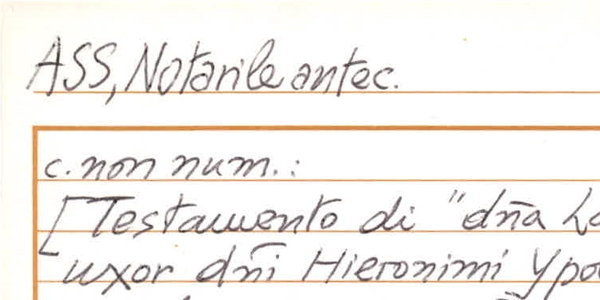 ASS, Notarile antec.
c. non num.:
[Testamento di "dña
uxor dñi Hieronimi